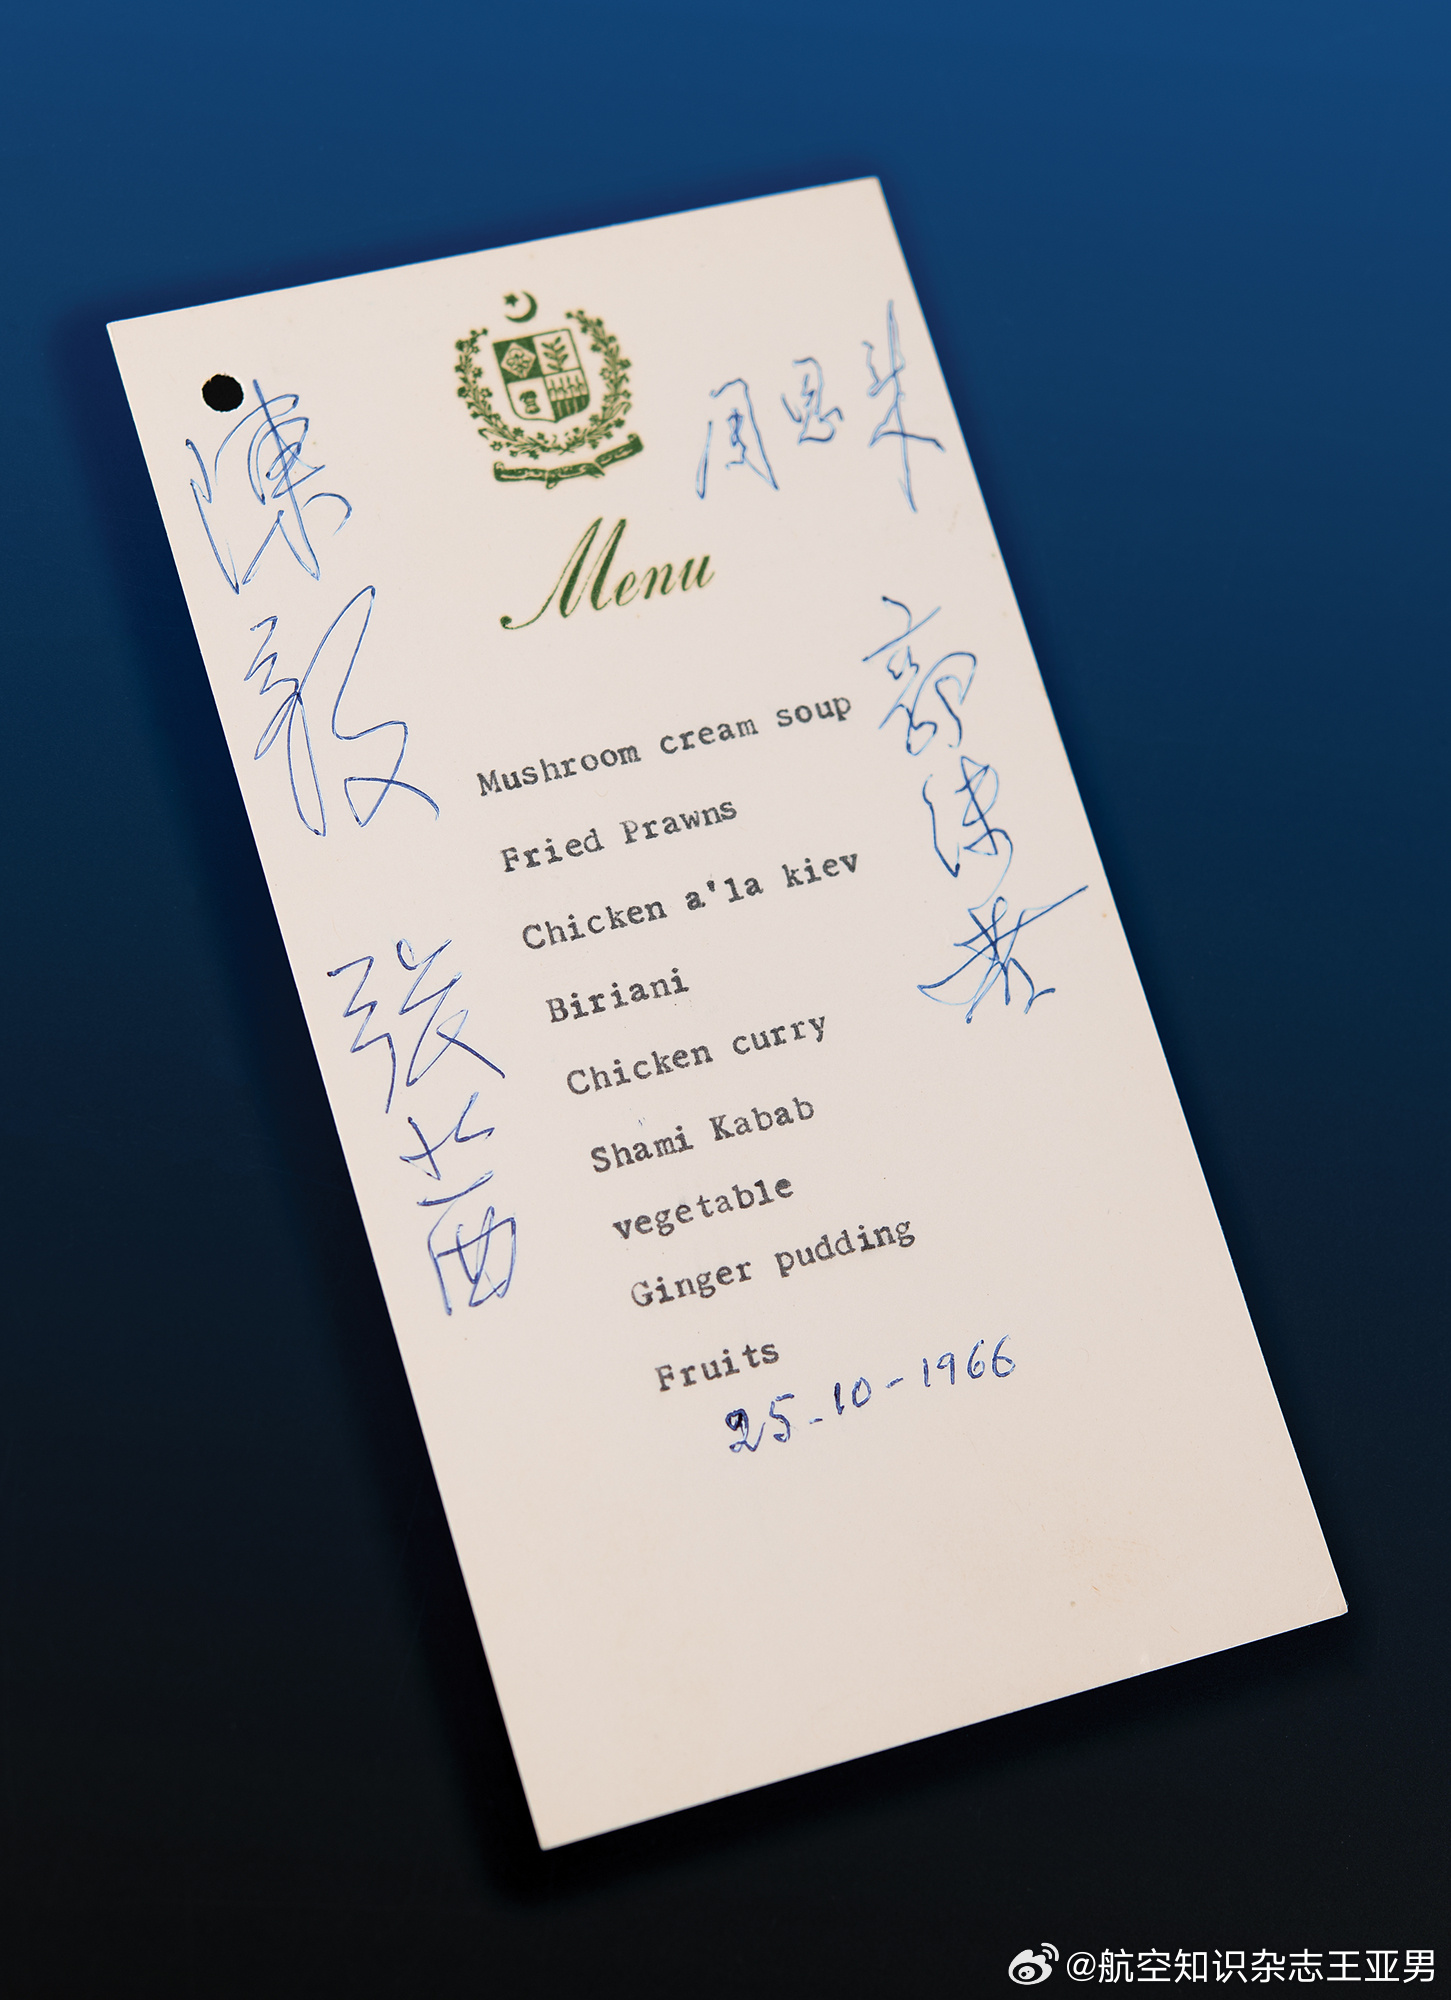 陳毅
周恩来
Menu
郭沫若
張茜
Mushroom cream soup
Fried Prawns
Chicken a'la kiev
Biriani
Chicken curry
Shami Kabab
vegetable
Ginger pudding
Fruits
25-10-1966
@航空知识杂志王亚男